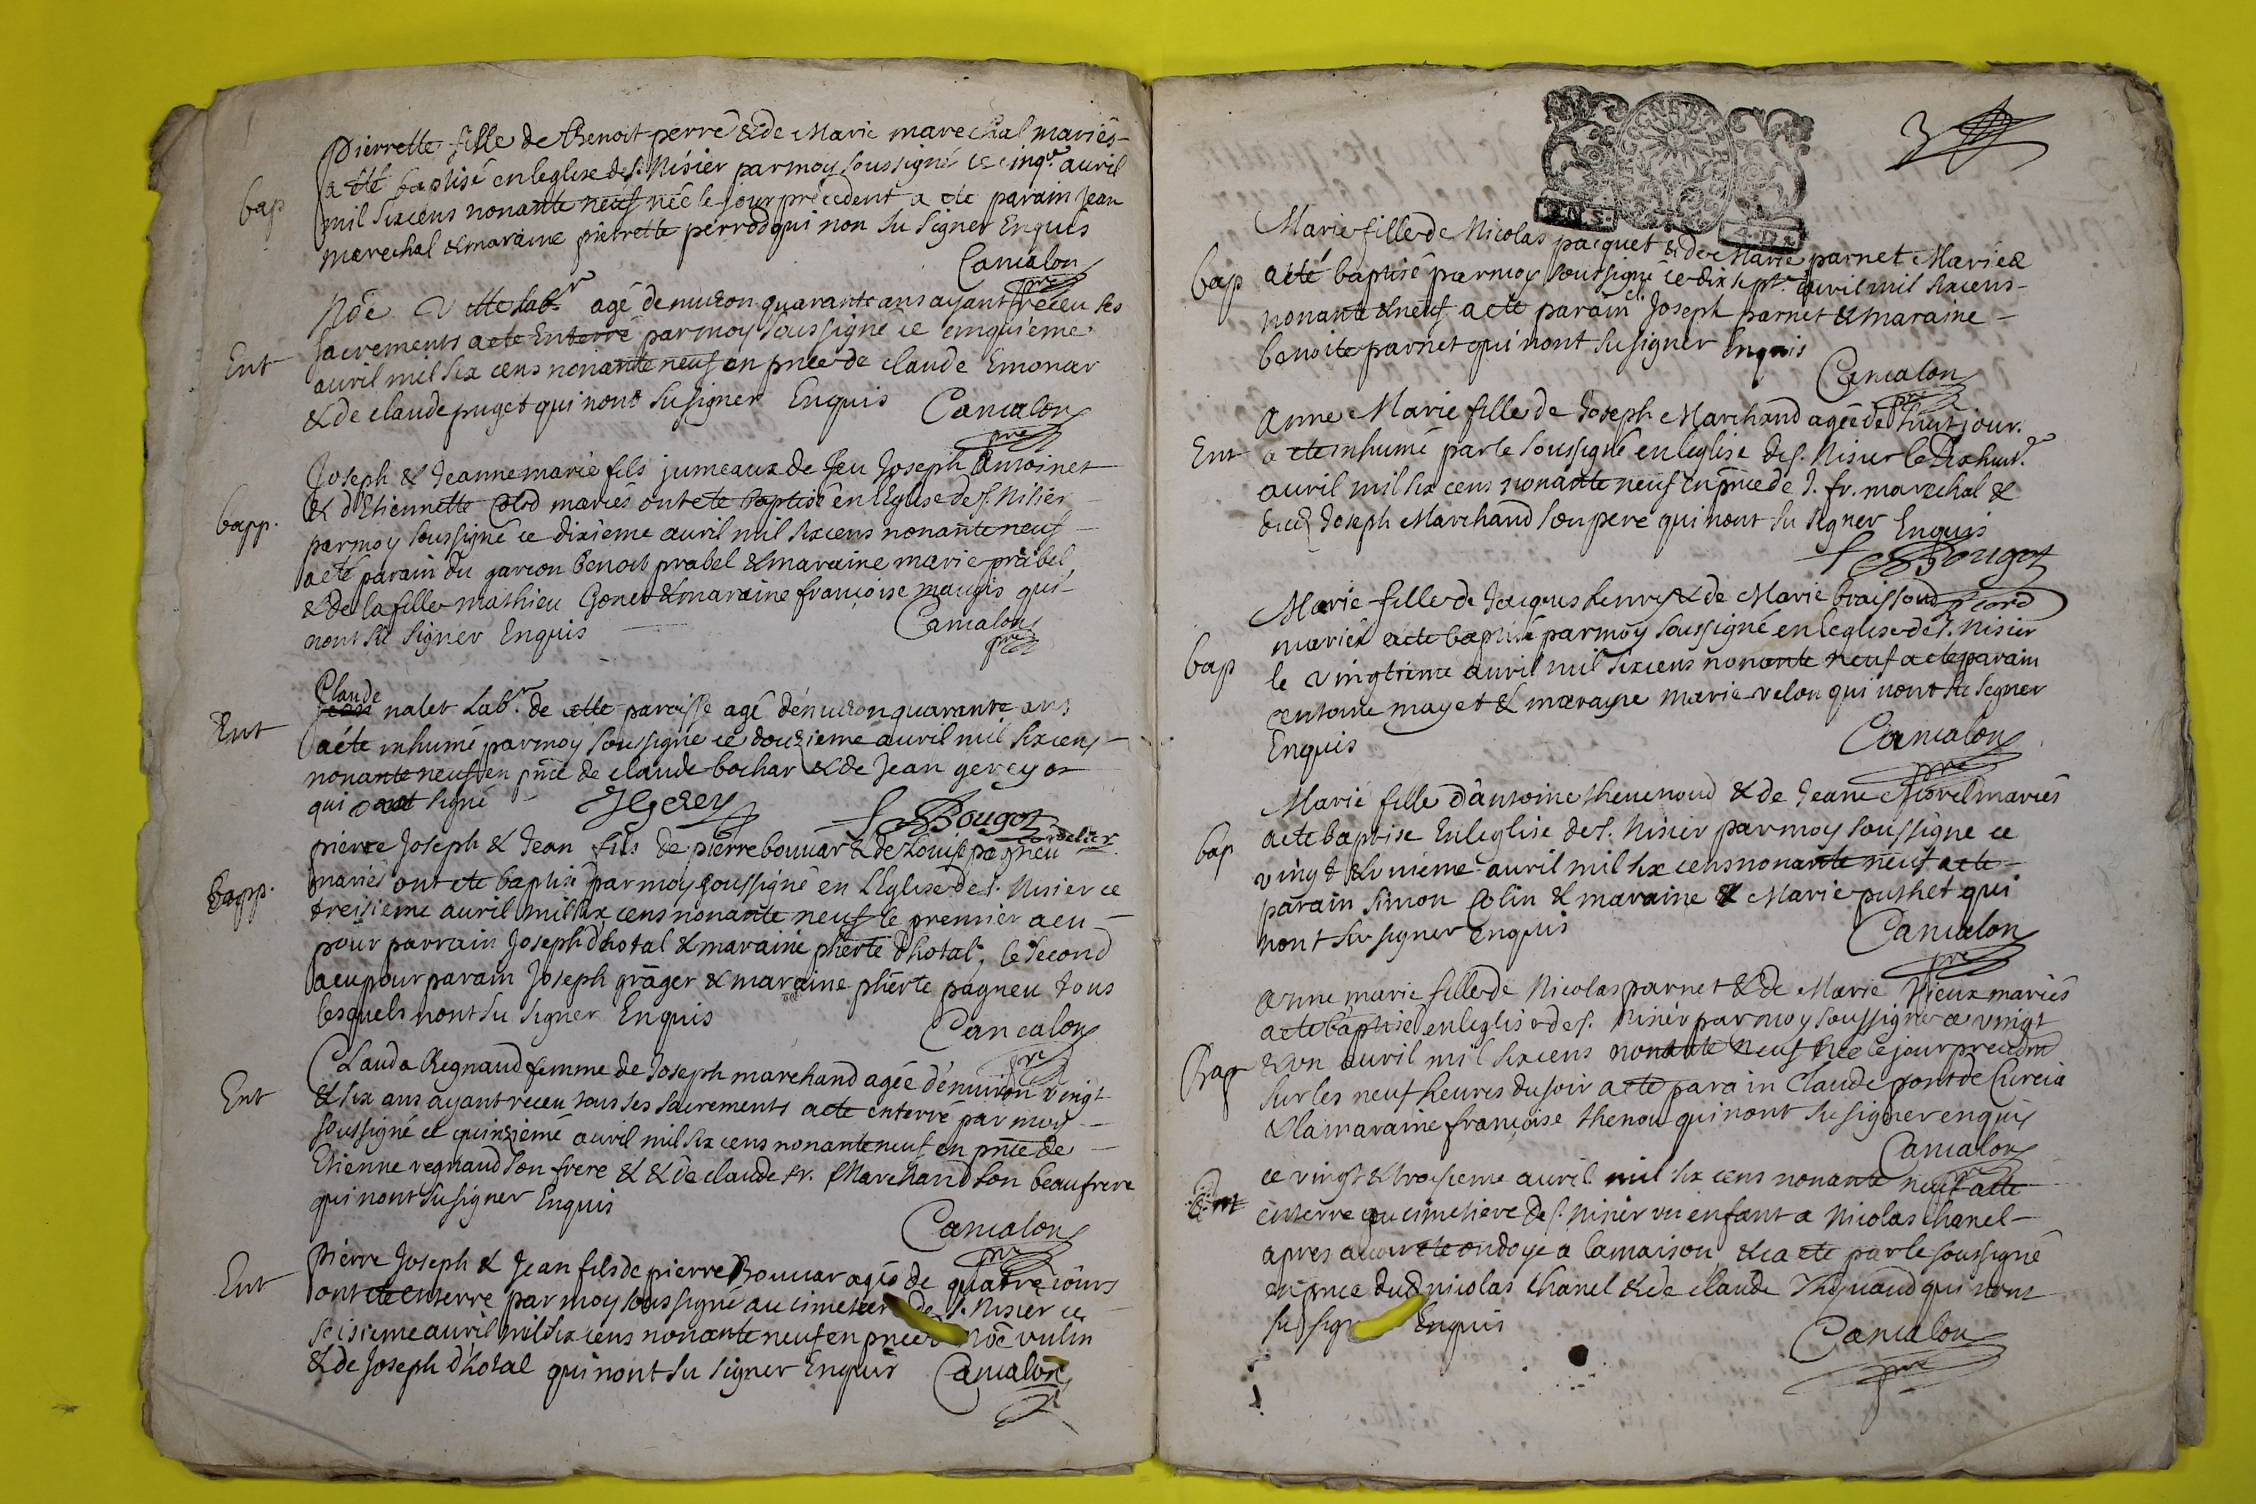 bap
Pierrette fille de Benoit perré & de Marie marechal mariés
a été baptisé en leglise de s. Nisier par moy soussigné ce cinqe. auril
mil six cens nonante neuf née le jour precedent a ete parain Jean
marechal & maraine pierrette perrod qui non su signer Enquis
Cancalon
pre
Ent
Noé labr. agé denuiron quarante ans ayant receu ses
sacrements a ete Enterré par moy soussigné ce cinquieme
auril mil six cens nonante neuf en pnce de claude Emonar
& de claude puget qui nont su signer Enquis
Cancalon
pre
bapp.
Joseph & Jeanne marie fils jumeaux de feu Joseph Antoinet
& d'Etiennette mariés ont ete baptisé en l'Eglise de s. Nisier
par moy soussigné ce dixieme auril mil six cens nonante neuf
a eté parain du garcon Benoit prabel & maraine marie prabel
& de la fille mathieu Gonet & maraine francoise maugis qui
nont su signer Enquis
Cancalon
pre
Claude
Ent
Jean nalet Labr. de cette paroisse agé denuiron quarante ans
a été inhumé par moy soussigné ce douzieme auril mil six cens
nonante neuf en pnce de claude bochar & de Jean gerey
qui ont signé
JGerey
f Bougot
Cordelier
Bapp.
pierre Joseph & Jean fils de pierre bouuar & de Louise pagneu
mariés ont ete baptisé par moy soussigné en L'Eglise de s. Nisier ce
treisieme auril mil six cens nonante neuf le premier a eu
pour parrain Joseph d'hotal & maraine pherte d'hotal, le second
a eu pour parain Joseph grager & maraine pherte pagneu tous
lesquels nont su signer Enquis
Cancalon
pre
Ent
Clauda Regnaud femme de Joseph marchand agée d'enuiron vingt
& six ans ayant receu tous ses sacrements a ete enterré par moy
soussigné ce quinzieme auril mil six cens nonante neuf en pnce de
Etienne regnaud son frere & & de claude fr. Marchand son beaufrere
qui nont su signer Enquis
Cancalon
pre
Ent
pierre Joseph & Jean fils de pierre Bouuar agés de quatre iours
ont ete enterré par moy soussigné au cimetier de s. Nisier ce
seisieme auril mil six cens nonante neuf en pnce Noé vulin
& de Joseph d'hotal qui nont su signer Enquis
Cancalon
3
bap
Marie fille de Nicolas pacquet & de Marie parnet Mariés
a eté baptisé par moy soussigné ce dix sept. auril mil six cens
nonante & neuf a ete parain Joseph parnet & maraine
benoite parnet qui nont su signer Enquis
Cancalon
pre
Ent
Anne Marie fille de Joseph Marchand agée de huit jour.
a ete inhumé par le soussigné en leglise de s. Nisier le dix huite.
auril mil six cens nonante neuf en pnce de J. fr. marechal &
dud. Joseph Marchand son pere qui nont su signer Enquis
f Bougot
cord
bap
Marie fille de Jacques henry & de Marie braissoud
mariés a ete baptisé par moy soussigné en leglise de s. Nisier
le vingtieme auril mil six cens nonante neuf a ete parain
antoine mayet & marayne marie velon qui nont su signer
Enquis
Cancalon
pre
bap
Marie fille d'antoine theuenoud & de Jeane morel mariés
a ete baptise En leglise de s. Nisier par moy soussigné ce
vingt & vnieme auril mil six cens nonante neuf a ete
parain simon Colin & maraine & Marie puthet qui
nont su signer Enquis
Cancalon
pre
Bap
Anne marie fille de Nicolas parnet & de Marie Vieux mariés
a ete baptisé en leglise de s. Nisier par moy soussigné ce vingt
& vn auril mil six cens nonante neuf née le jour precedend
sur les neuf heures du soir a ete parain Claude pont de Curcia
& la maraine francoise thenou qui nont su signer enquis
Cancalon
pre
Ent
ce vingt & troisieme auril mil six cens nonante neuf a ete
enterre au cimetiere de s. Nisier vn enfant a Nicolas chanel
apres auoir ete ondoyé a la maison, & la ete par le soussigné
en pnce dud nicolas chanel & de claude Thouaud qui nont
su sign Enquis
Cancalon
pre